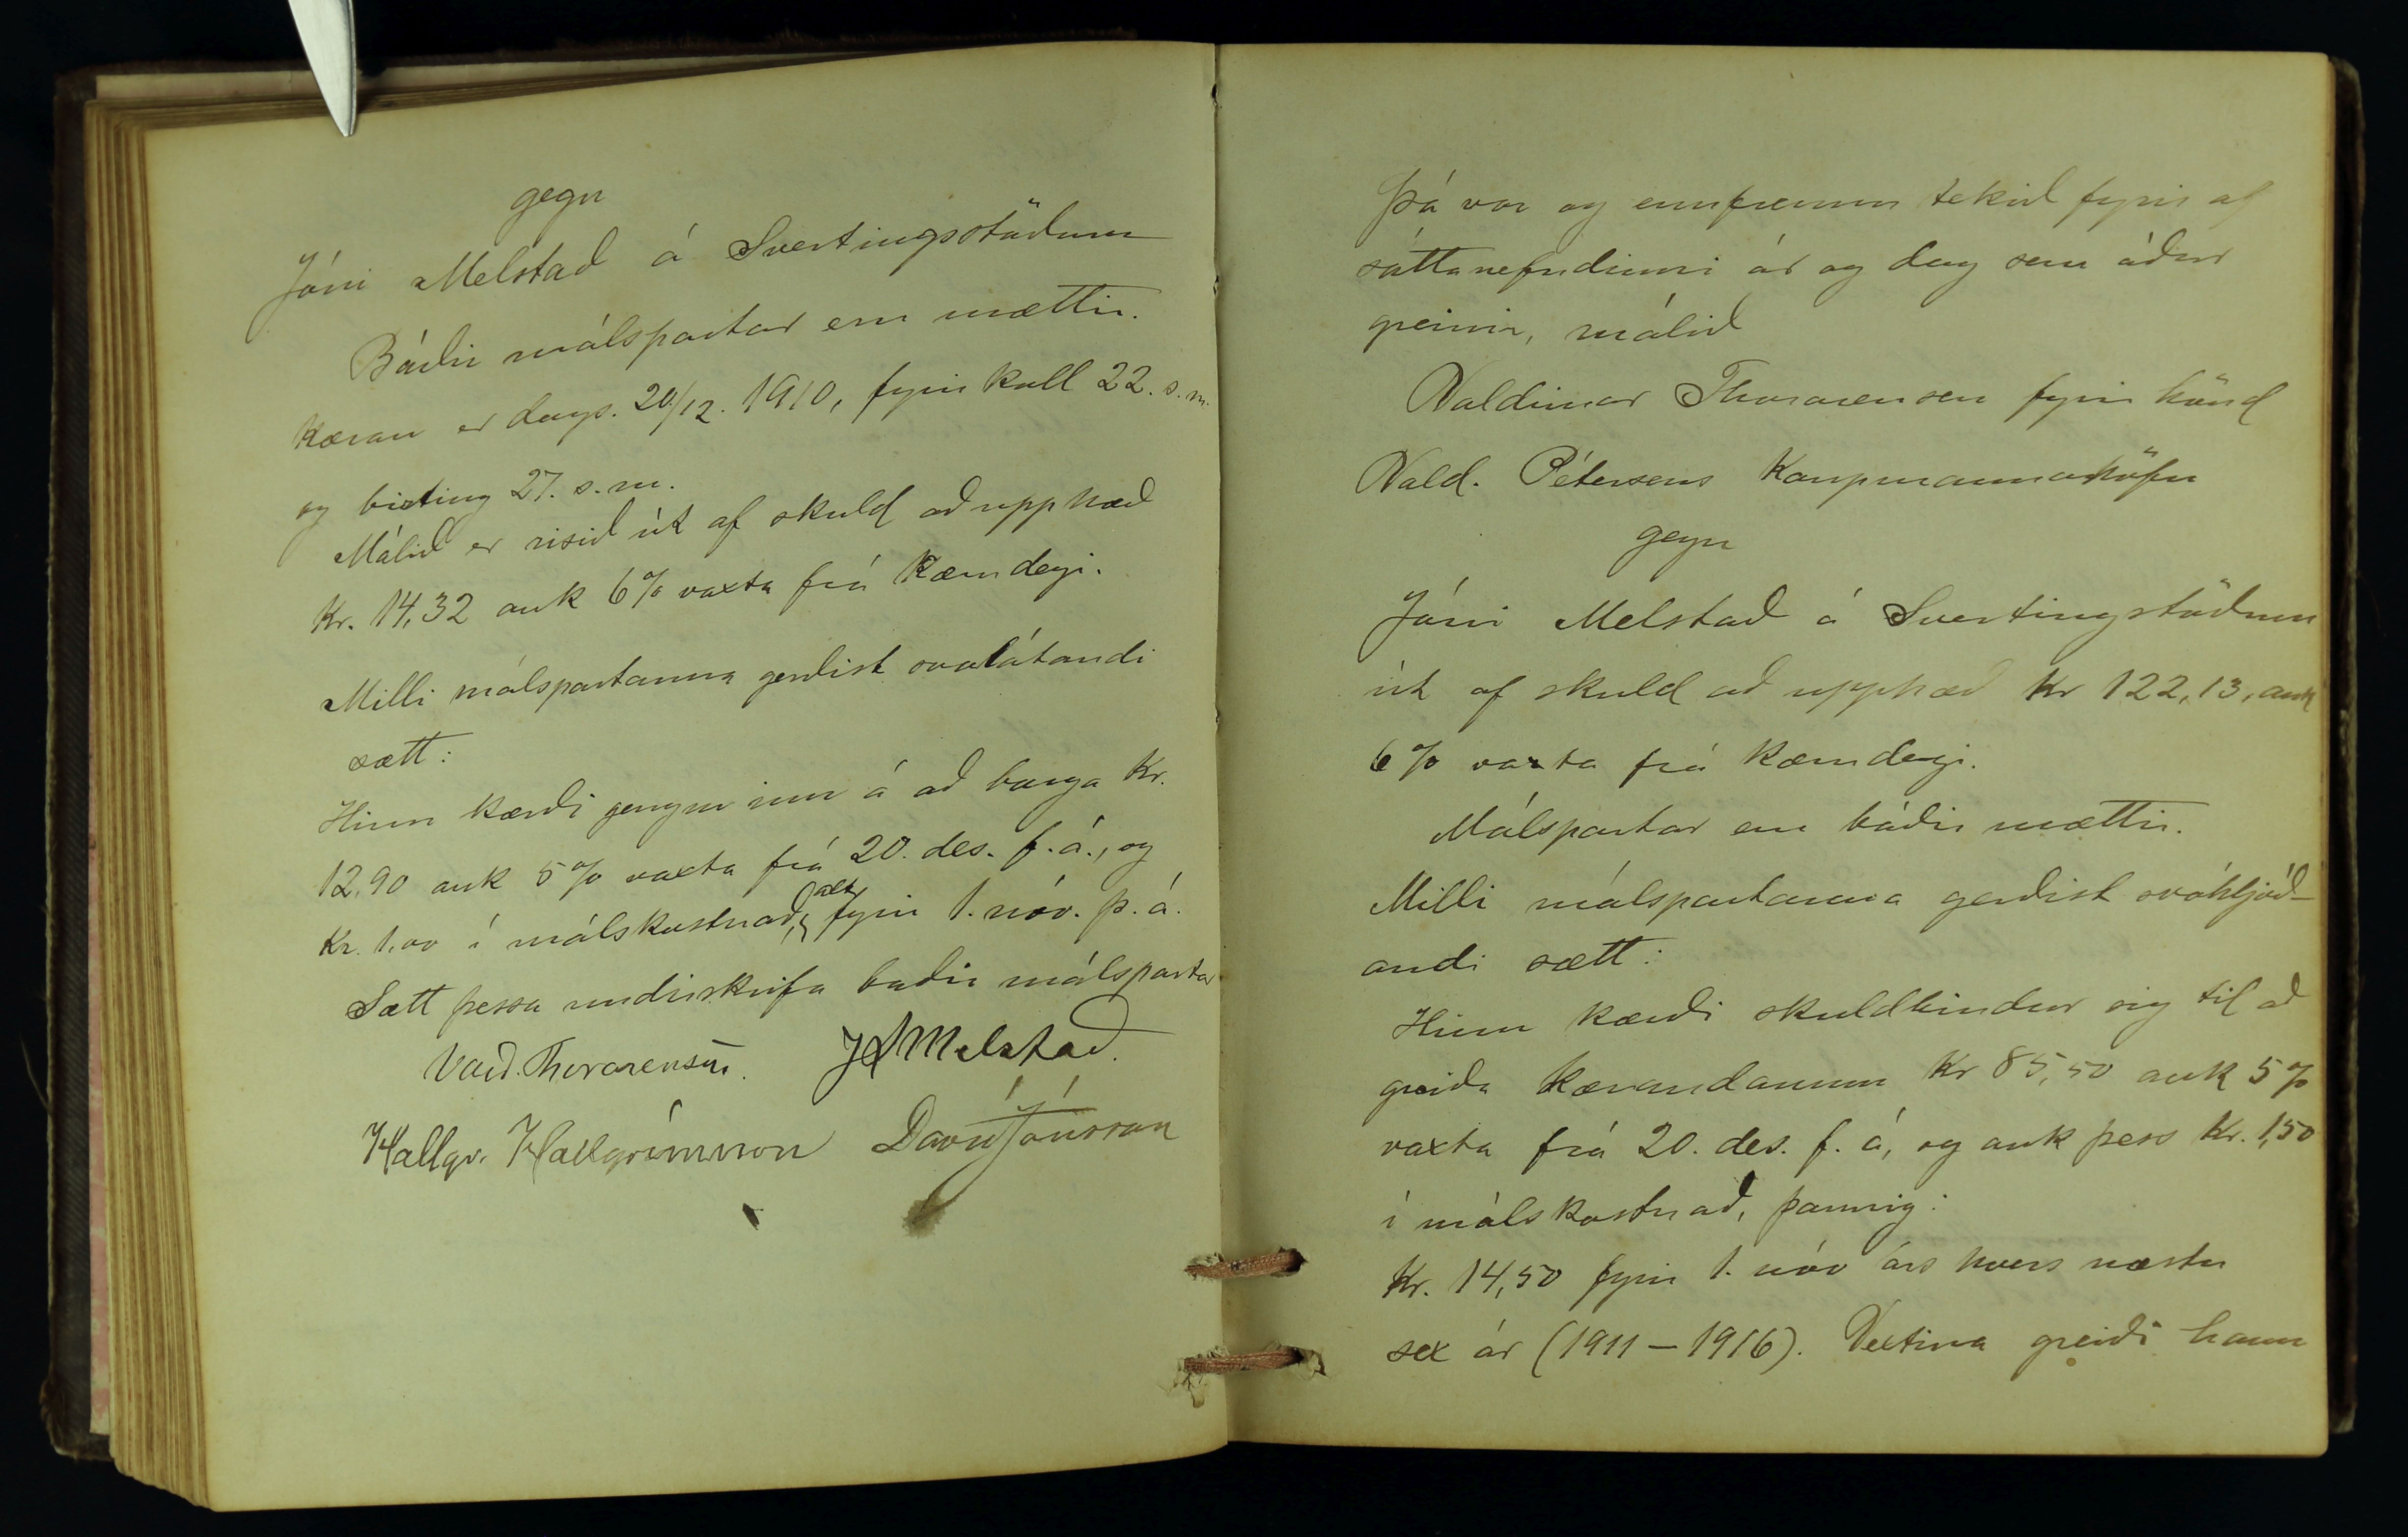 gegn
Jóni Melstað á Svertingsstöðum
Báðir málspartar eru mættir.
Kæran er dags. 20/12. 1910, fyrirkall 22. s.m.
og birting 27. s.m.
Málið er risið út af skuld að upphæð
Kr. 14,32 auk 6% vaxta frá Kærudegi.
Milli málspartanna gerðist svolátandi
sætt:
Hinn kærði gengur inn á að borga Kr.
12,90 auk 5% vaxta frá 20. des. f.á., og
Kr. 1,00 í málskostnað, alt fyrir 1. nóv. þ.á.
Sætt þessa undirskrifa baðir málspartar
Vald. Thorarensen. J Melstað.
Hallgr. Hallgrímsson Davíð Jónsson
Þá var og ennfremur tekið fyrir af
sáttanefndinni ár og dag sem áður
greinir, málið
Valdimar Thorarensen fyrir hönd
Vald. Pétersens Kaupmannahöfn
gegn
Jóni Melstað á Svertingstöðum
út af skuld að upphæð Kr 122,13, auk
6% vaxta frá Kærudegi.
Málspartar eru báðir mættir.
Milli málspartanna gerðist svohljóð-
andi sætt:
Hinn kærði skuldbindur sig til að
greiða Kærandanum Kr 85,50 auk 5%
vaxta frá 20. des. f. á, og auk þess Kr. 1,50
í málskostnað, þannig:
Kr. 14,50 fyrir 1. nóv árs hvers næstu
sex ár (1911 – 1916). Vextina greiði hann